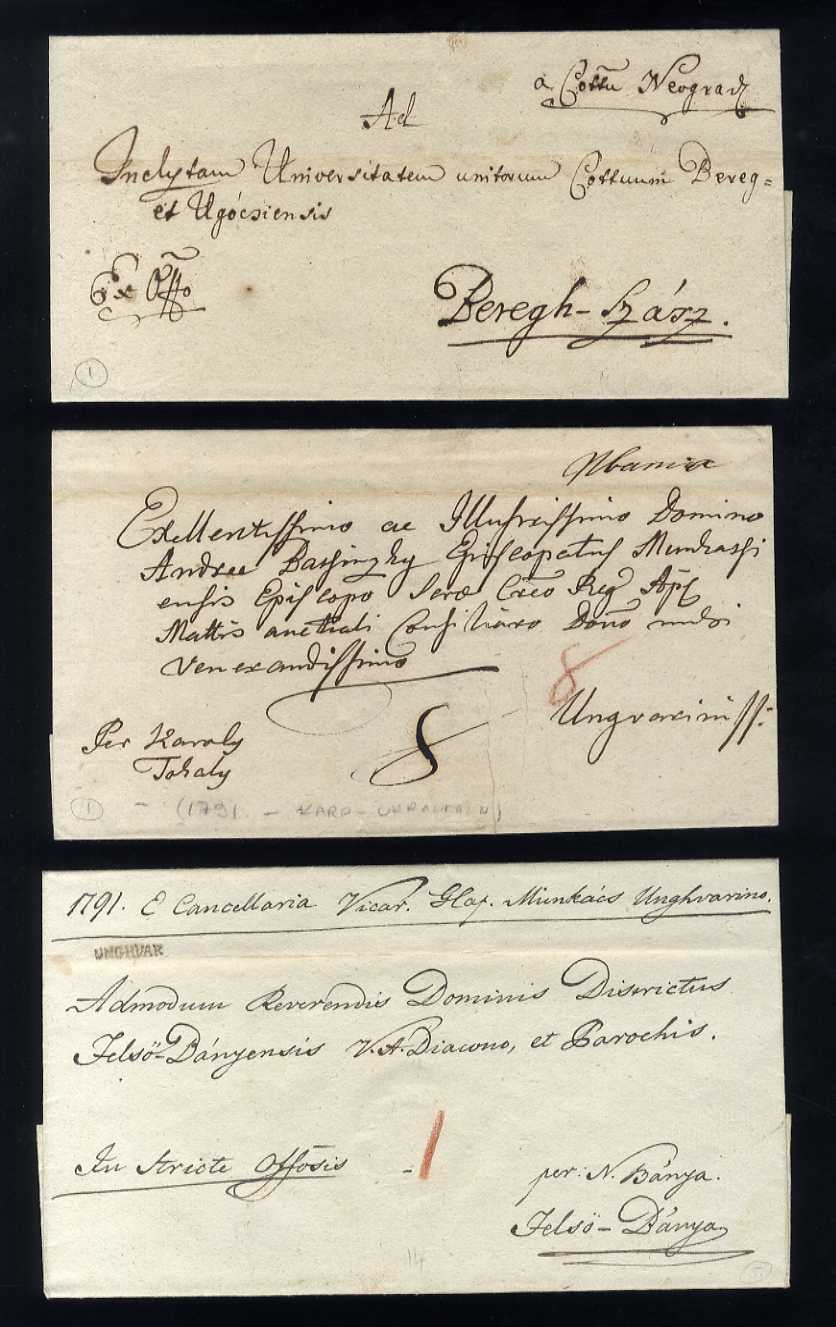 a Cottu Neograd
Ad
Inclytam Universitatem unitorum Cottuum Bereg=
et Ugócsiensis
Ex Offo
Beregh-Szász.
1
Nbania
Exellentissimo ac Illustrissimo Domino
Andree Bacsinzky Episcopatus Munkacsi
ensis Episcopo Sacro Cæo Reg Apl
Mattis Consiliaro Dono
Venerandissimo
8
Ungvarini
Per Karoly
Tokaly
8
1 - (1791. - KARP-UKRAINE)
1791. E Cancellaria Vicar. Gnal. Munkács Unghvarino.
UNGHVAR
Admodum Reverendis Dominis Districtus
Felsö-Bányensis V. A. Diacono, et Parochis.
In Stricte Offosis - 1
per: N. Bánya.
Felsö-Bánya
14